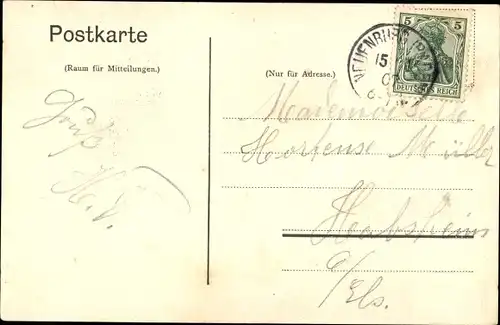 Postkarte
(Raum für Mitteilungen.)
(Nur für Adresse.)
5 5
DEUTSCHES REICH
NEUENBURG
15
Gruß
H. V.
Mademoiselle
Hortense Müller
Habsheim
a/
Els.